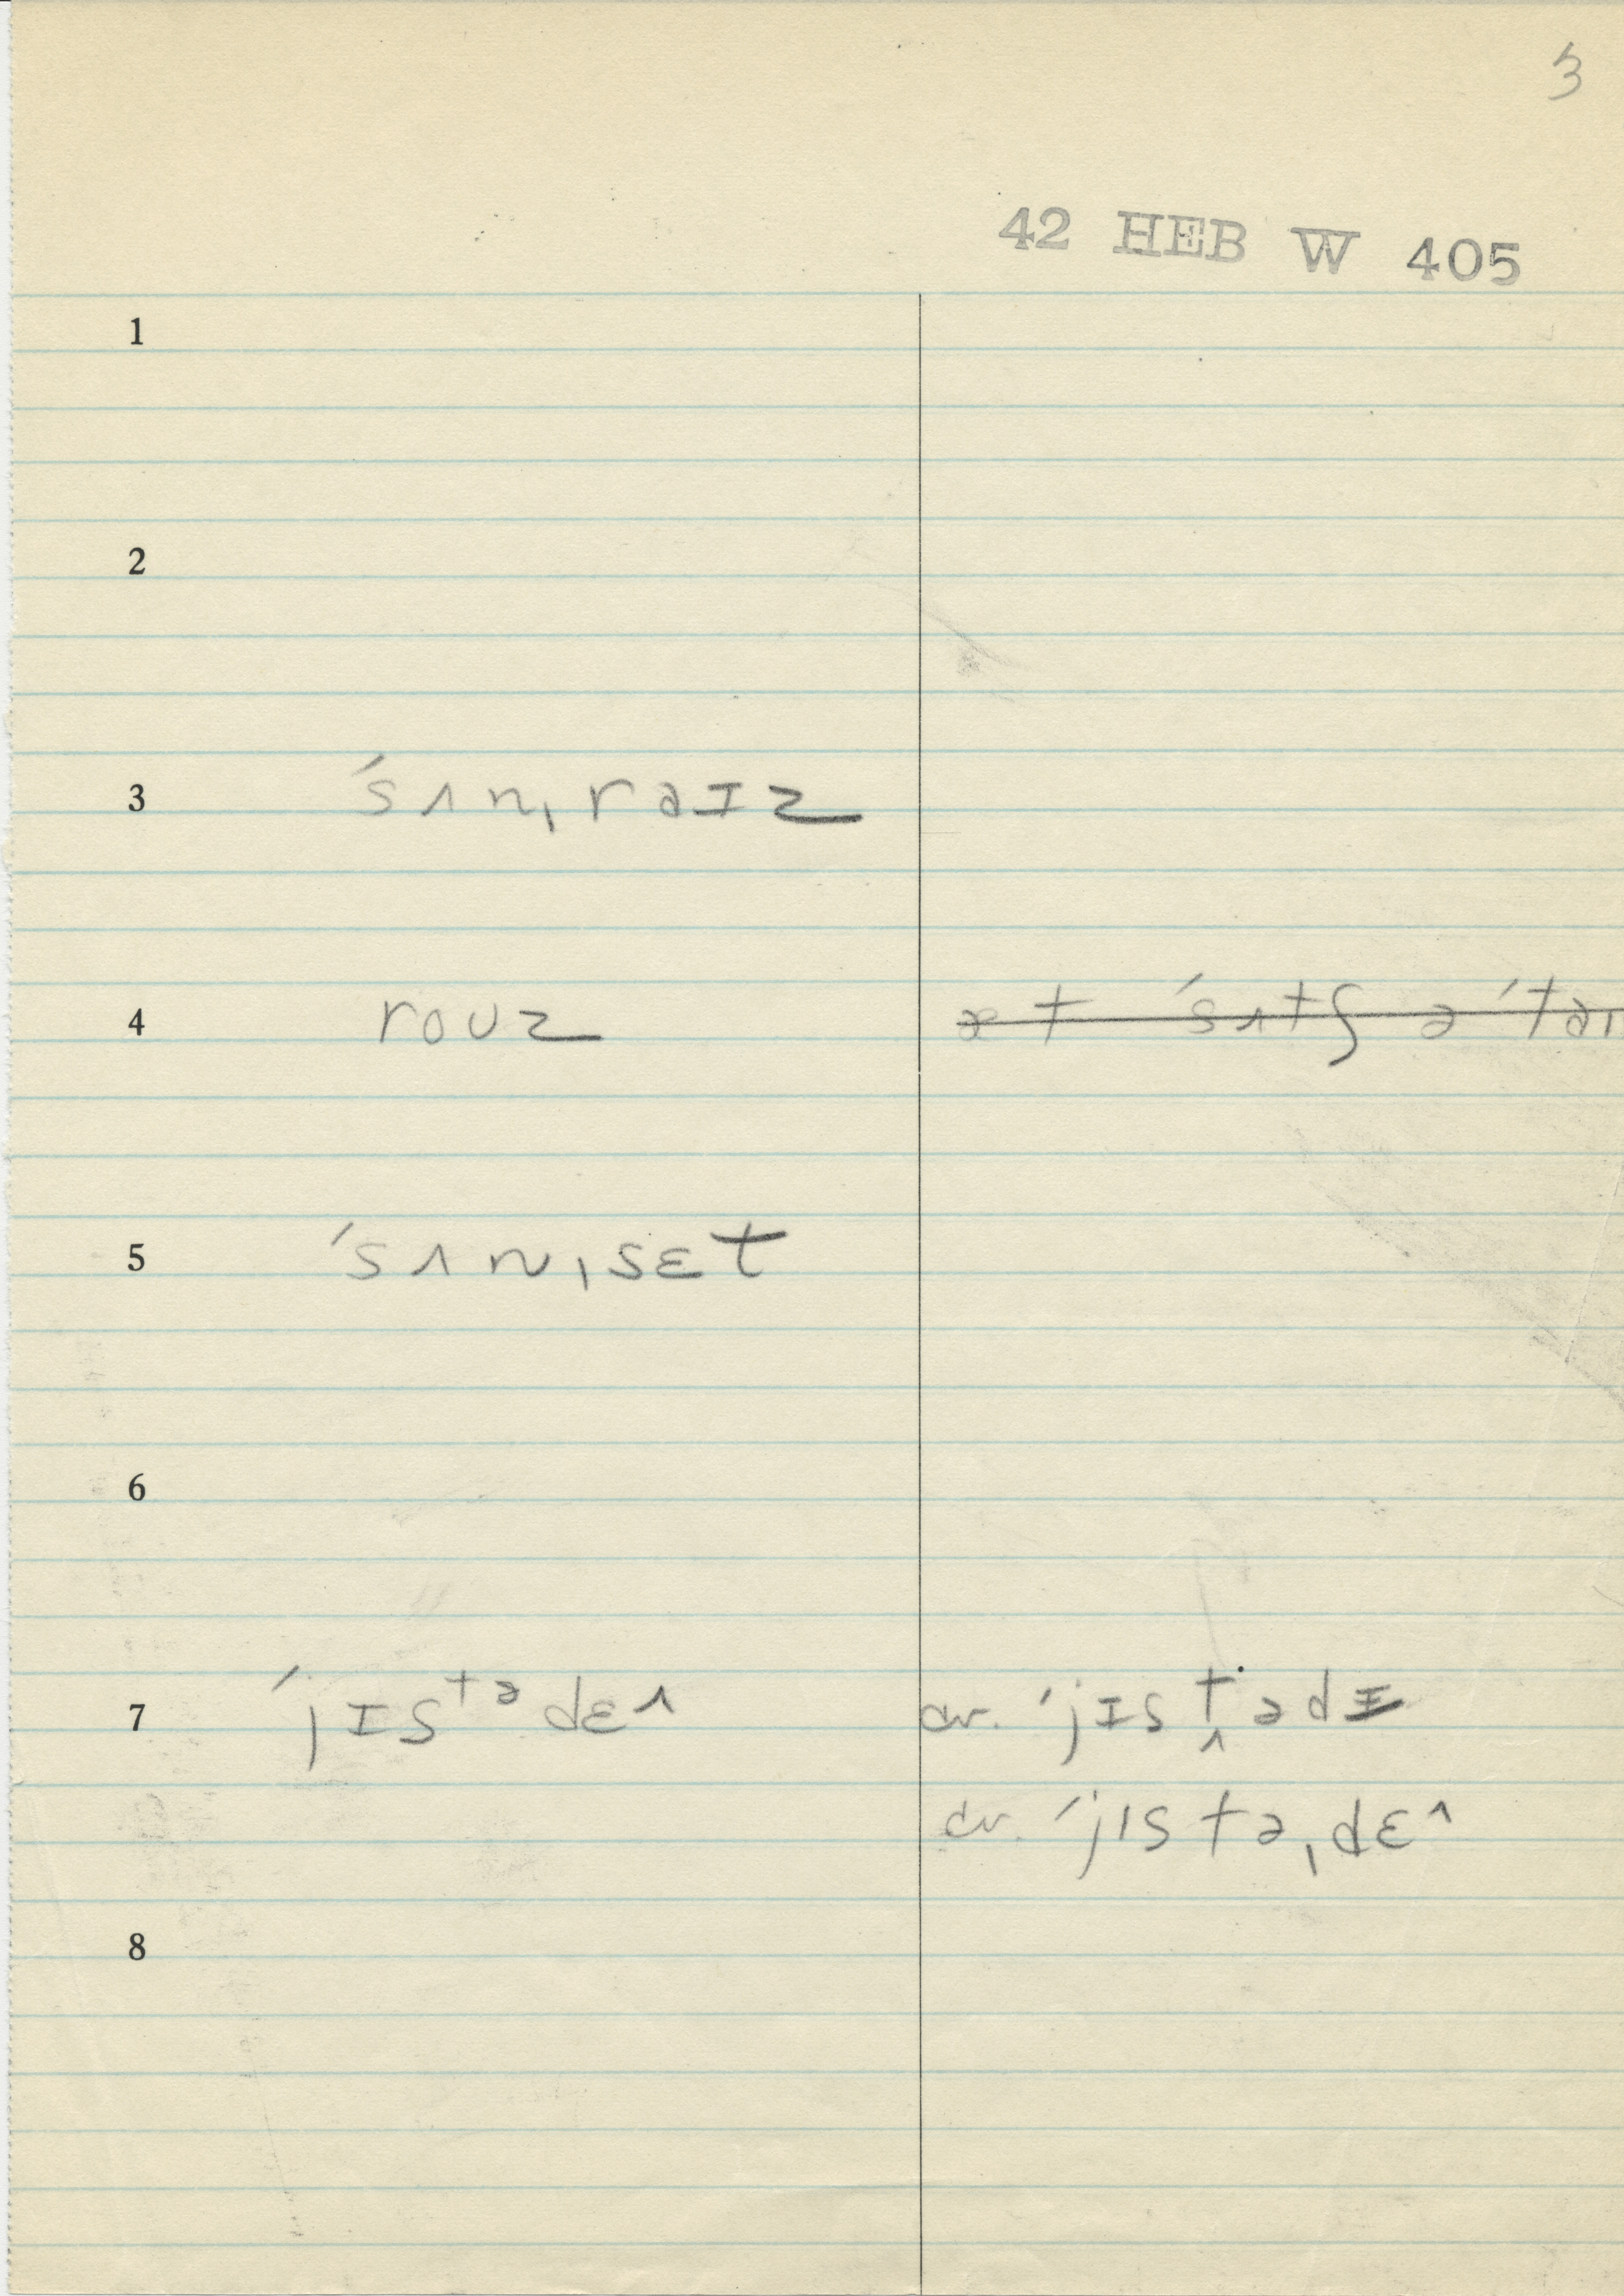 3
42 HEB W 405
1
2
3 ˈsʌnˌraɪz
4 roʊz æt ˈsʌtʃ ə ˈtaɪ
5 ˈsʌnˌsɛt
6
7 ˈjɪsᵗᵊdɛ^ cv. ˈjɪst̬ədɪ
cv. ˈjɪstəˌdɛ^
8